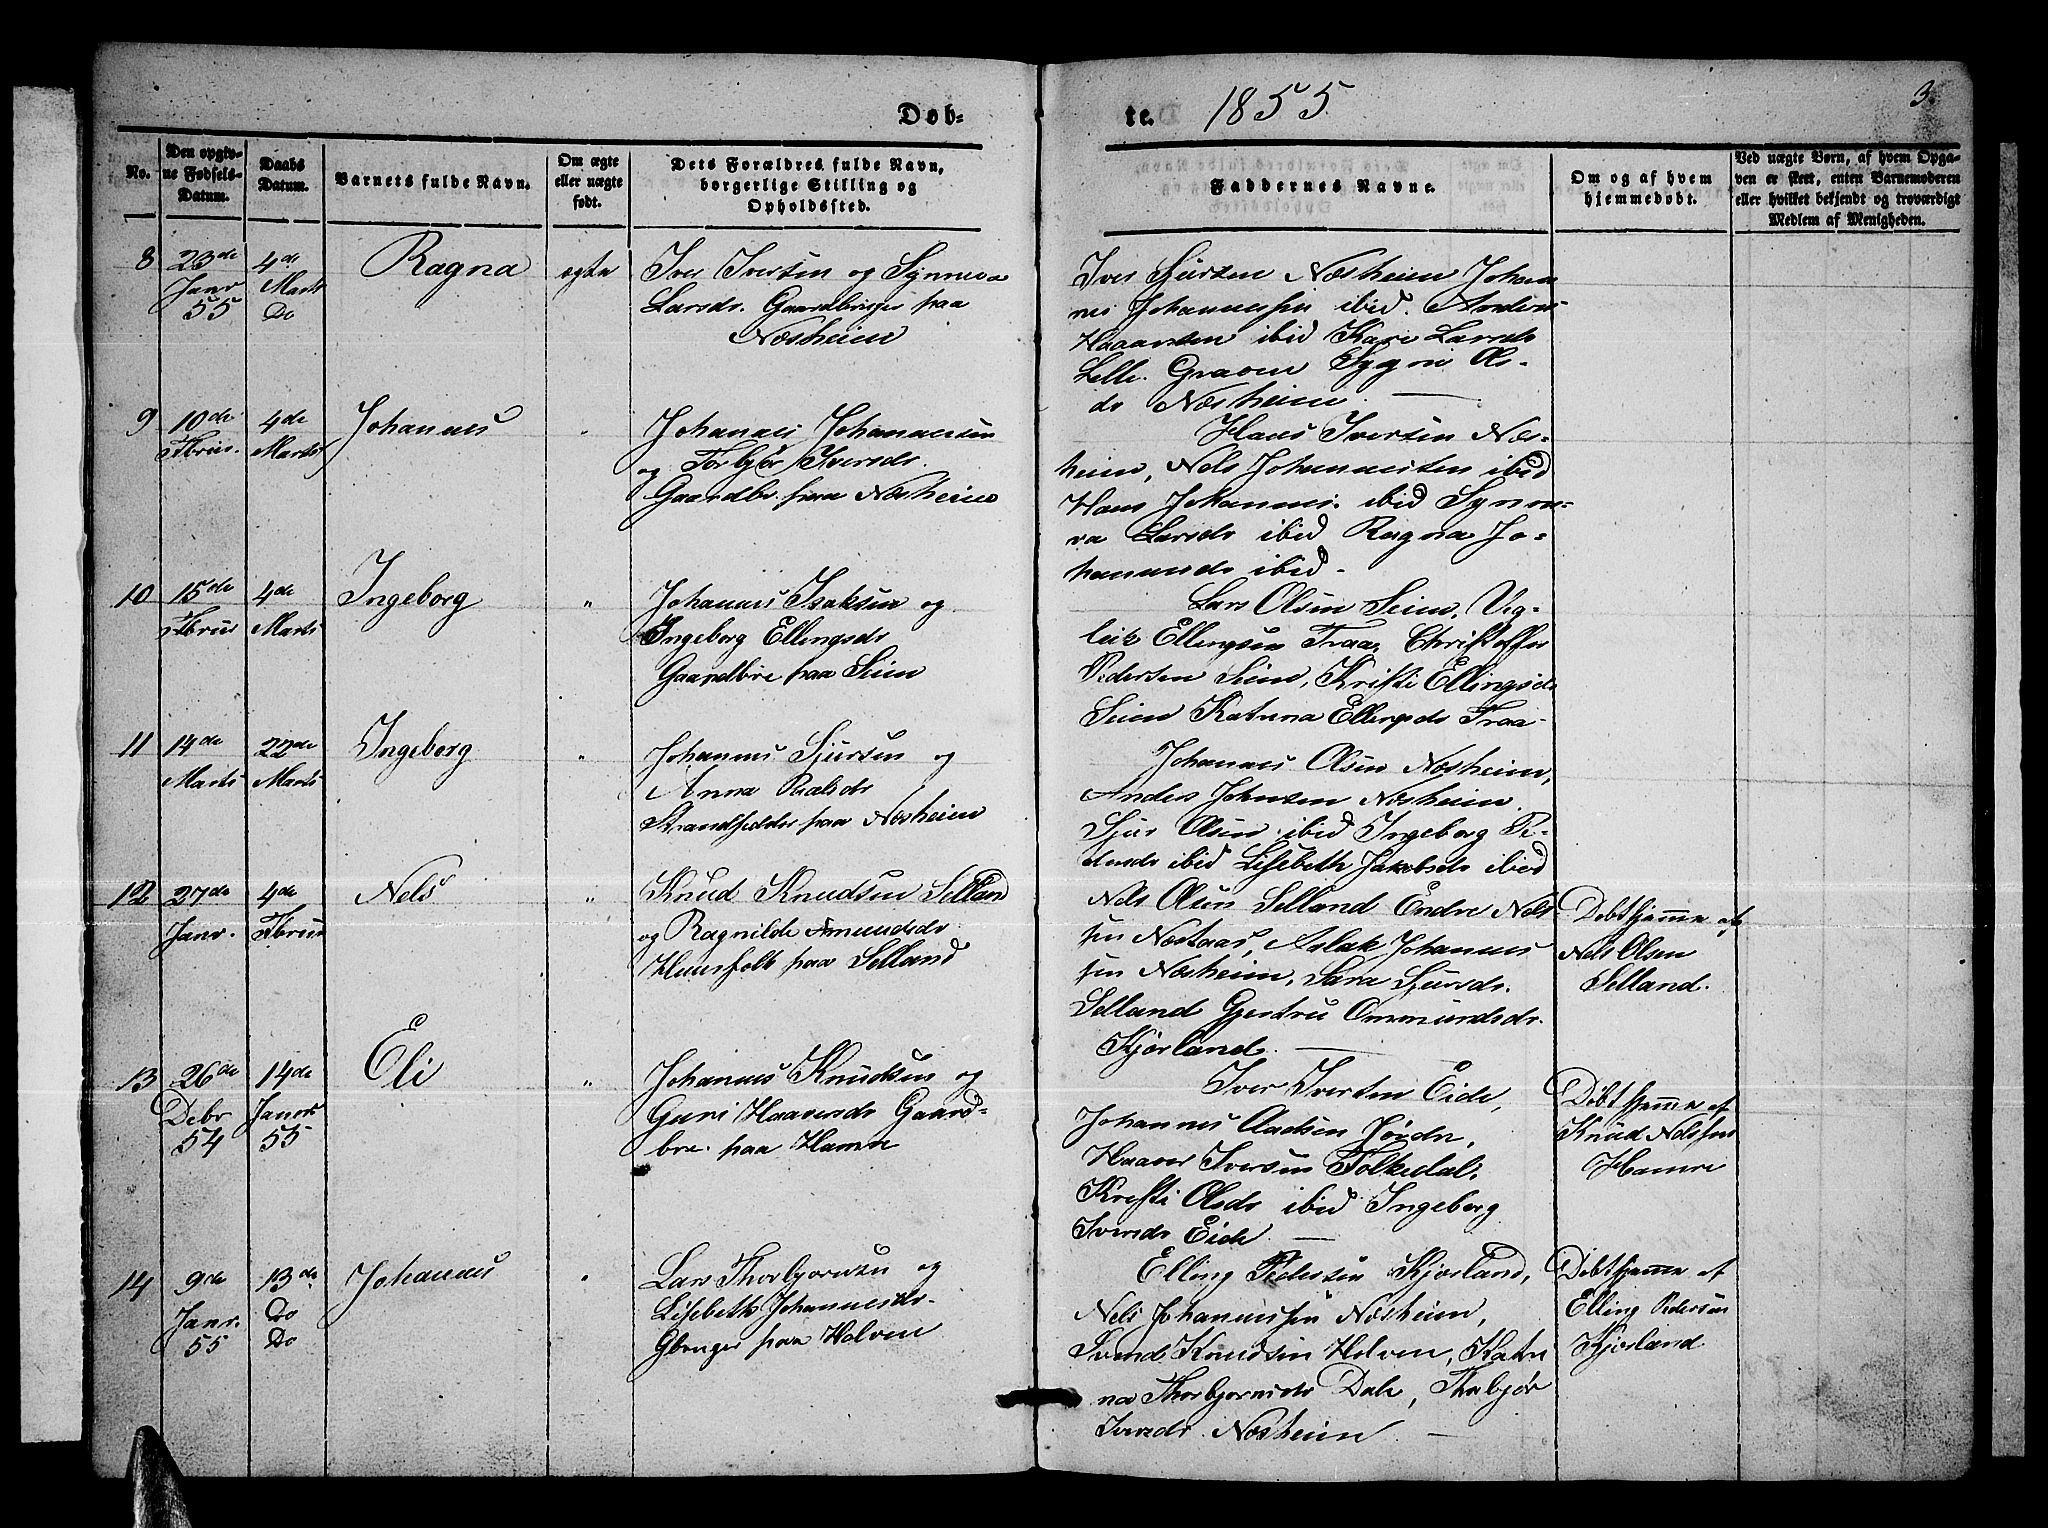 Døb-
te. 1855.
3.
No.
Den opgiv-
ne Fødsels-
Datum.
Daabs
Datum.
Barnets fulde Navn.
Om ægte
eller uægte
født.
Dets Forældres fulde Navn,
borgerlige Stilling og
Opholdssted.
Faddernes Navne.
Om og af hvem
hjemmedøbt.
Ved uægte Børn, af hvem Opga-
ven er skeet, enten Barnemoderen
eller hvilket bekjendt og troværdigt
Medlem af Menigheden.
8
23de
Janr
55
4de
Marts
Do
Ragna
ægte
Iver Iversen og Synneva
Larsdr. Gaardbruger paa
Næsheim
Iver Sjursen Næsheim Johan
nes Johannessen ibid. Anders
Haaversen ibid Kari Larsdr
Lelle Graven Sygni Ols-
dr Næsheim.
9
10de
Fbrur.
4de
Marts
Johannes
"
Johannes Johannesen
og Torbjør Iversdr.
Gaardbr. paa Næsheim
Hans Iversen Næs-
heim, Nels Johannesen ibid
Hans Johannes. ibid Synne-
va Larsdr ibid Ragna Jo-
hannesdr ibid.
10
15de
Fbrur
4de
Marts
Ingeborg
"
Johannes Isaksen og
Ingeborg Ellingsdr
Gaardbre paa Seim
Lars Olsen Seim, Vig-
leik Ellingsen Traa, Christoffer
Pedersen Seim, Kristi Ellingsdr
Seim Katrina Ellingsdr Traa-
11
14de
Marts
22de
Marts
Ingeborg
"
Johannes Sjursen og
Anna Paalsdr
Strandsidder paa Næsheim
Johannes Olsen Næsheim,
Anders Johnsen Næsheim.
Sjur Olsen ibid Ingeborg Pe-
dersdr ibid Lisebeth Jakobsdr ibid
12
27de
Janr.
4de
Fbrur
Nels
"
Knud Knudsen Selland
og Ragnilde Amundsdr
Huusfolk paa Selland
Nels Olsen Selland Endre Nels
sen Næstaas, Aslak Johannes
sen Næsheim, Sara Sjursdr.
Selland Gjertru Ommundsdr.
Kjørland.
Døbt hjemme af
Nels Olsen
Selland.
13
26de
Debr
54
14de
Janr
55
Eli
"
Johannes Knudsen og
Guri Haaversdr Gaard-
bre. paa Hamre
Iver Iversen Eide,
Johannes Aadsen Jørdre,
Haaver Iversen Folkedal.
Kristi Olsdr ibid Ingeborg
Iversdr Eide.
Døbt hjemme af
Knud Nelssen
Hamre
14
9de
Janr.
55
13de
Do
Do
Johannes
"
Lars Thorbjørnsen og
Lisebeth Johannesdr.
Gbruger paa Holven
Elling Pedersen Kjørland,
Nels Johannessen Næsheim,
Svend Knudsen Holven, Katri
na Thorbjørnsdr Dale, Thorbjør
Iversdr Næsheim
Døbt hjemme af
Elling Pedersen
Kjørland